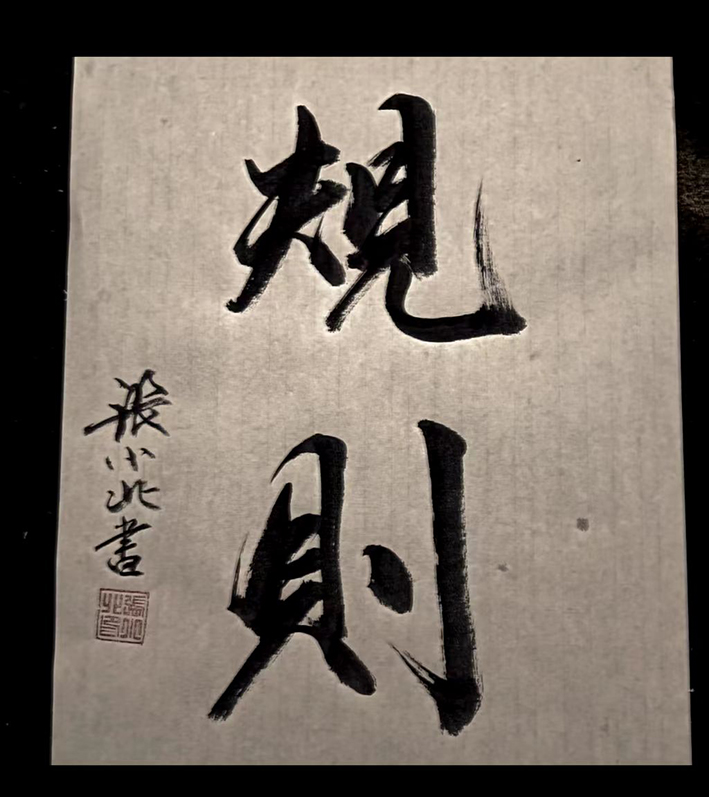 規則
張小北書
張小北印